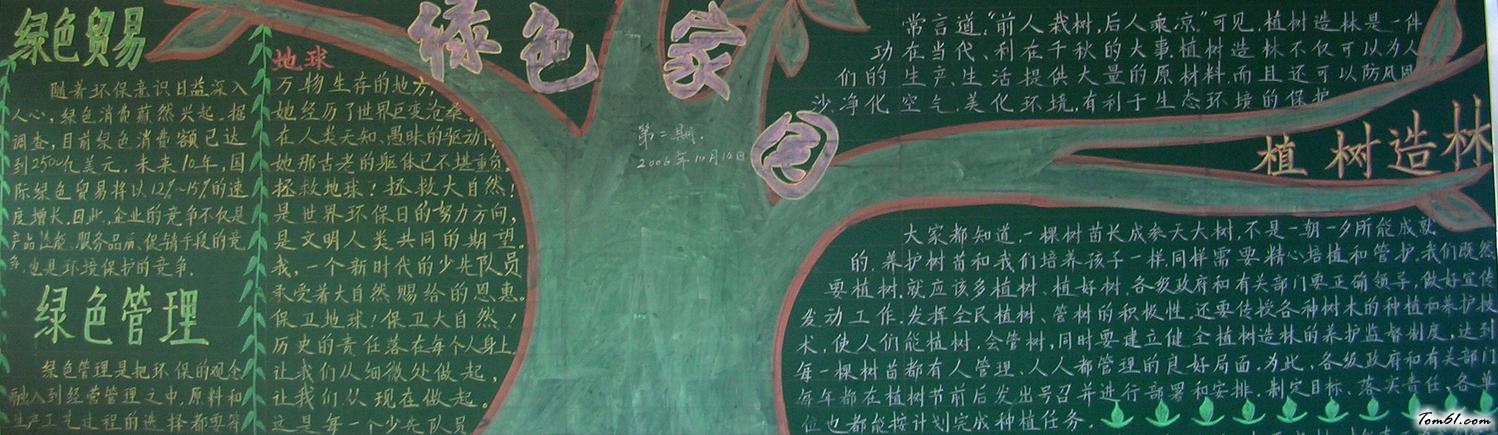 绿色贸易
随着环保意识日益深入
人心，绿色消费蔚然兴起。据
调查，目前绿色消费额已达
到2500亿美元，未来10年，国
际绿色贸易将以12%~15%的速
度增长。因此，企业的竞争不仅是
产品性能、服务品质、促销手段的竞
争，也是环境保护的竞争。
绿色管理
绿色管理是把环保的观念
融入到经营管理之中，原料和
生产工艺过程的选择都要符
地球
万物生存的地方，
她经历了世界巨变沧桑。
在人类无知、愚昧的驱动下，
她那古老的躯体已不堪重负。
拯救地球！拯救大自然！
是世界环保日的努力方向，
是文明人类共同的期望。
我，一个新时代的少先队员
承受着大自然赐给的恩惠。
保卫地球！保卫大自然！
历史的责任落在每个人身上。
让我们从细微处做起，
让我们从现在做起。
这是每一个少先队员
绿色家园
第二期.
2006年10月10日
常言道："前人栽树，后人乘凉"可见，植树造林是一件
功在当代、利在千秋的大事，植树造林不仅可以为人
们的生产、生活提供大量的原材料，而且还可以防风固
沙、净化空气、美化环境，有利于生态环境的保护
植树造林
大家都知道，一棵树苗长成参天大树，不是一朝一夕所能成就
的，养护树苗和我们培养孩子一样同样需要精心培植和管护，我们既然
要植树，就应该多植树 植好树，各级政府和有关部门要正确领导，做好宣传
发动工作，发挥全民植树、管树的积极性，还要传授各种树木的种植和养护技
术，使人们能植树，会管树，同时要建立健全植树造林的养护监督制度，达到
每一棵树苗都有人管理、人人都管理的良好局面。为此，各级政府和有关部门
每年都在植树节前后发出号召并进行部署和安排，制定目标、落实责任，各单
位也都能按计划完成种植任务。
Tom61.com